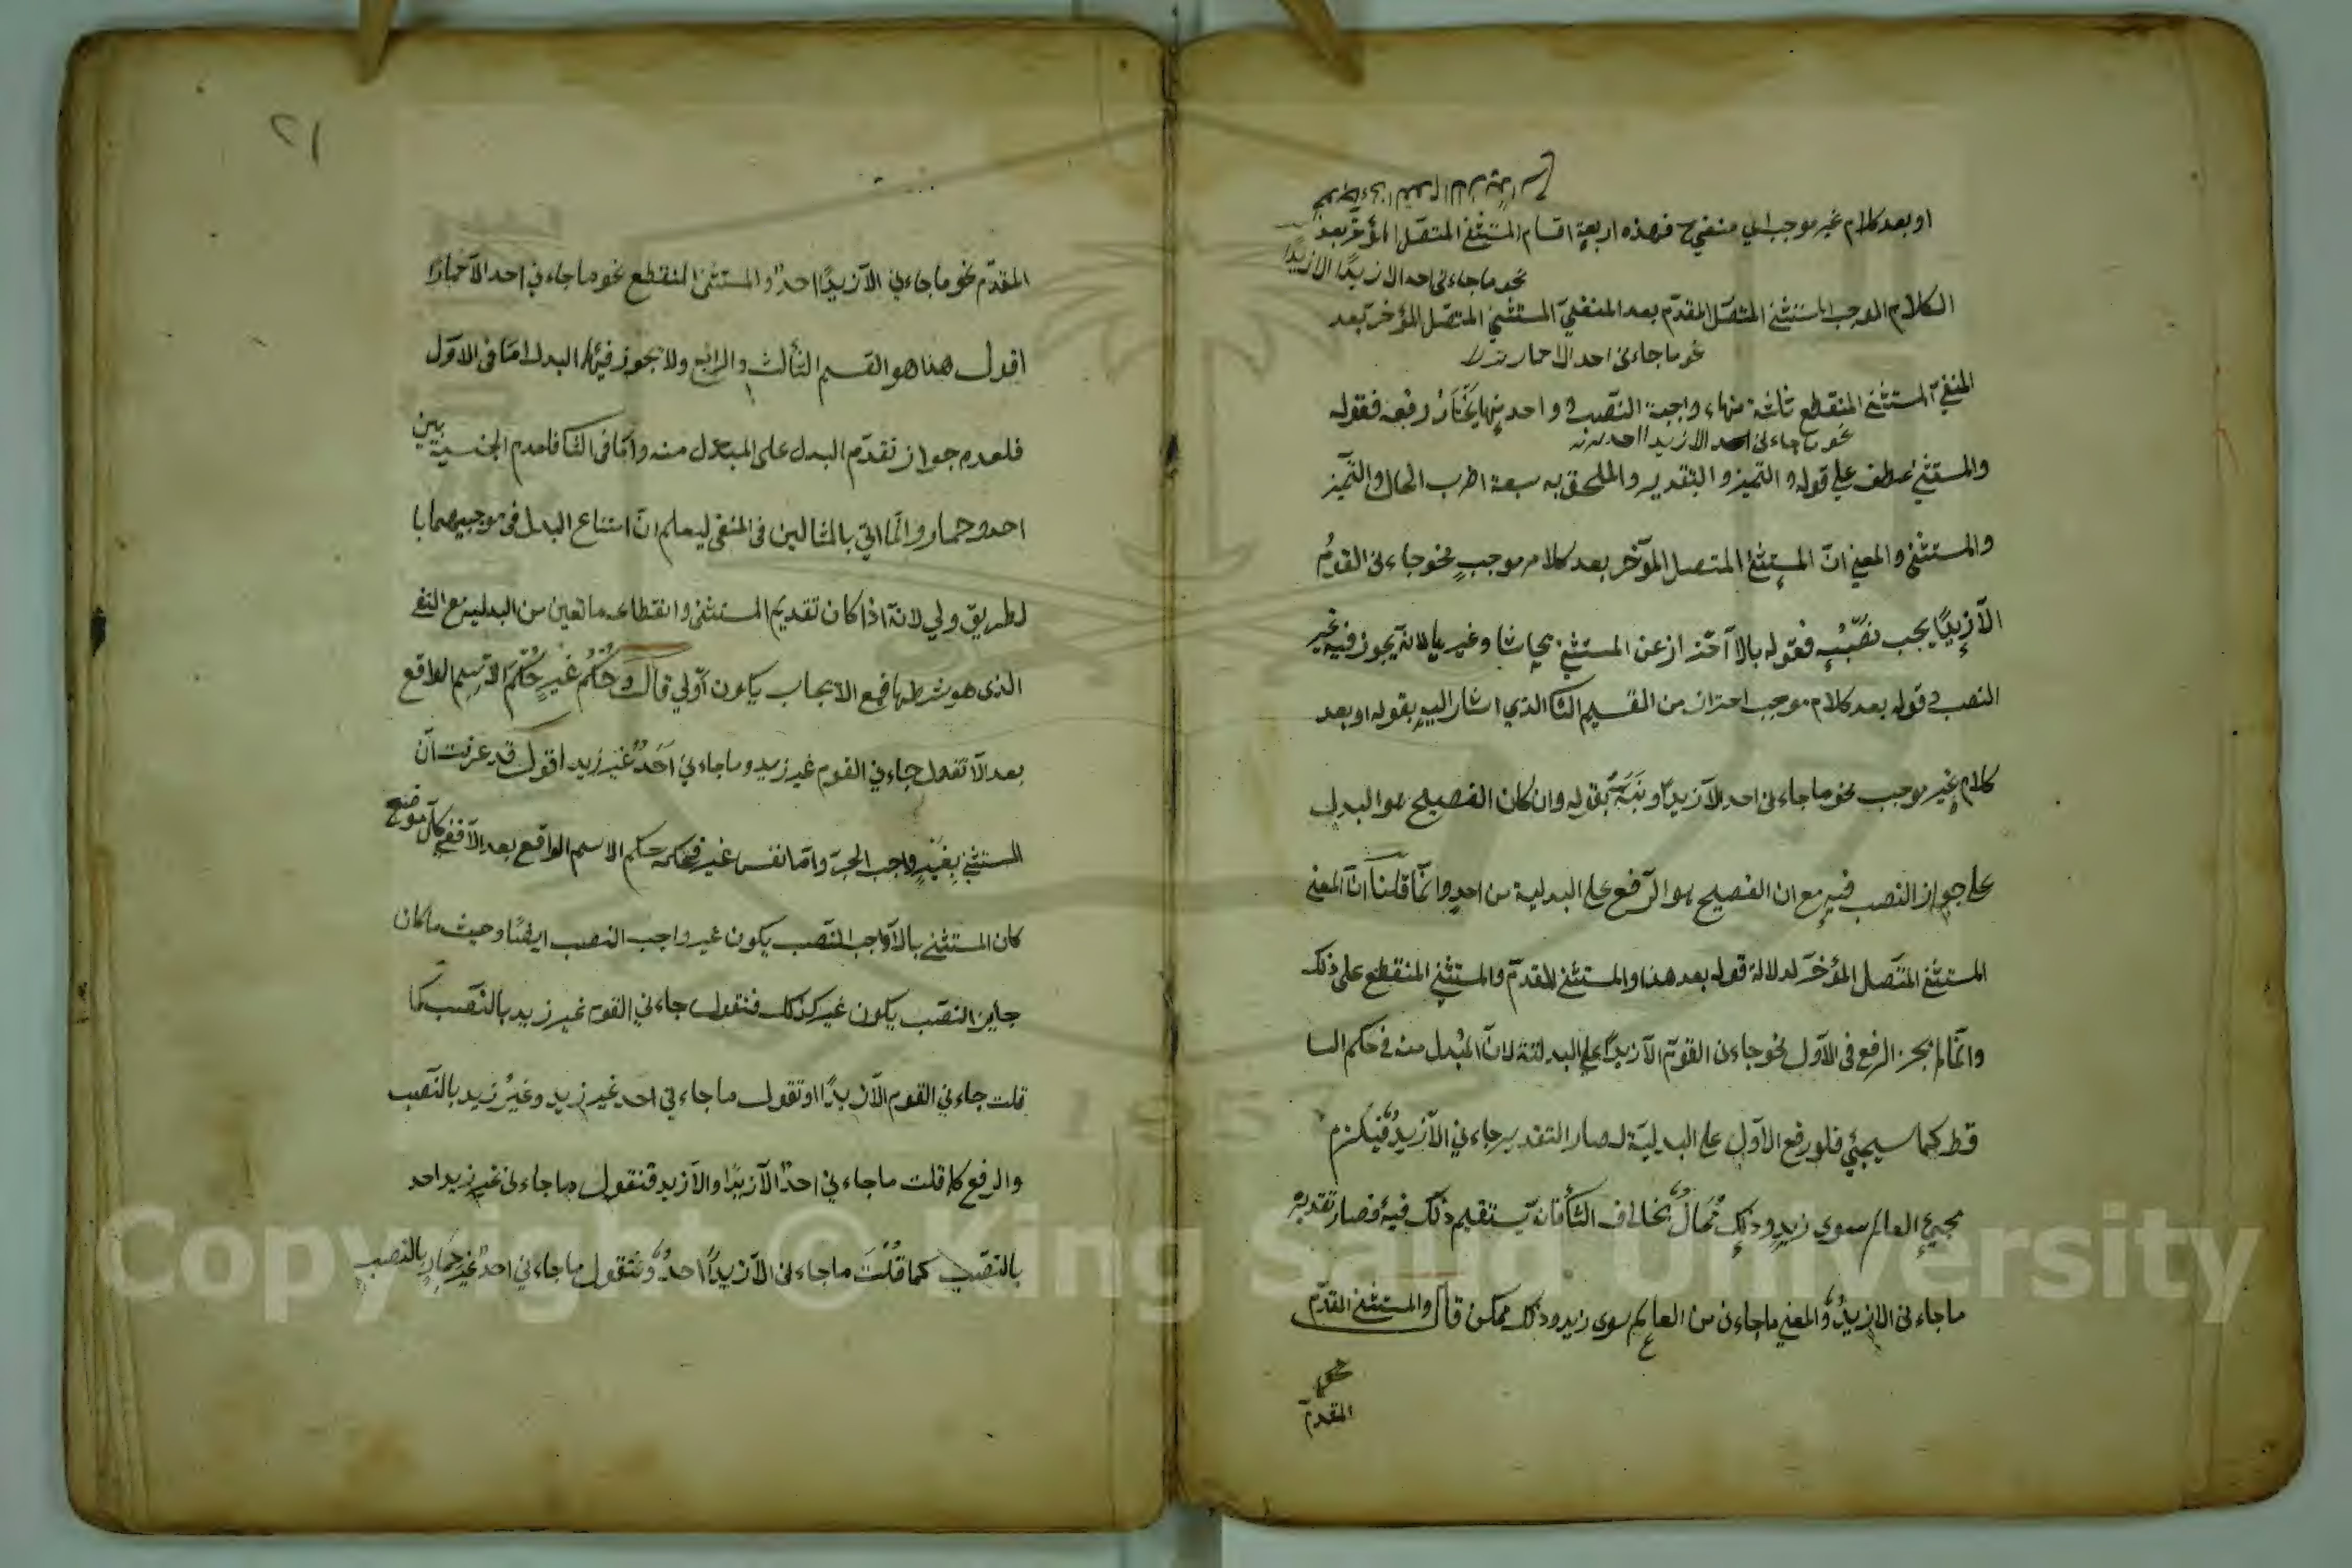 او بعد كلام غير موجب اي منفي فهذه اربعة اقسام المستثنى المتصل المؤخر بعد
نحو ما جاءنى احد الا زيدًا الا زيدًا
الكلام الموجب المستثنى المتصل المقدم بعد المنفي المستثنى المتصل المؤخر بعد
نحو ما جاءنى احد الا حمارا
المنفي المستثنى المنقطع ثلثة منها واجبة النصب و واحد منها يختار رفعه فقوله
نحو ما جاءنى احد الا زيدا احد
والمستثنى عطف على قوله والتميز و التقدير والملحق به سبعة اضرب الحال والتميز
والمستثنى والمعنى انّ المستثنى المتصل المؤخر بعد كلام موجب نحو جاءنى القومُ
الّا زيدًا يجب نصبُه فقوله بالا احتراز عن المستثنى بحاشا وغيرها لانه يجوز فيه غير
النصب و قوله بعد كلام موجب احتراز من القسم الثا الذي اشار اليه بقوله او بعد
كلام غير موجب نحو ما جاءنى احد الّا زيدًا ونبّه بقوله وان كان الفصيح هو البدل
على جواز النصب فيه مع ان الفصيح هو الرّفع على البدلية من احد وانّما قلنا انّ المعنى
المستثنى المتّصل المؤخّر لدلالة قوله بعد هذا والمستثنى المقدّم والمستثنى المنقطع على ذلك
وانّما لم يجز الرفع فى الاوّل نحو جاءنى القوم الّا زيدًا على البدلية لانّ المُبدل منه فى حكم السا
قط كما سيجئ فلو رفع الاوّل على البدليّة لصار التقدير جاءني الّا زيدٌ فيلزم
مجئ العالم سوى زيدٍ وذلك مُحالٌ بخلاف الثا فانه يستقيم ذلك فيه فصار تقديره
ما جاءنى الا زيدٌ والمعنى ما جاءنى من العالم سوى زيد وذلك ممكن قال والمستثنى المقدّم
المقدم
٢١
المقدّم نحو ما جاءني الّا زيدًا احدٌ والمستثنى المنقطع نحو ما جاءني احد الّا حمارًا
اقول هذا هو القسم الثالث والرابع ولا يجوز فيهما البدل امّا فى الاوّل
فلعدم جواز تقدّم البدل على المبدل منه وامّا فى الثا فلعدم الجنسية بين
احد وحمار وانّما اتى بالمثالين فى المنفى ليعلم انّ امتناع البدل فى موجبيهما با
لطريق ولي لانّه اذا كان تقديم المستثنى وانقطاعه مانعين من البدلية مع النفى
الذى هو شرطها فمع الايجاب يكون اولي قال وحُكْمُ غَيْرٍ حُكْمُ الاسم الواقع
بعد الّا تقول جاءني القوم غير زيد وما جاءني احدٌ غير زيد اقول قد عرفت انّ
المستثنى بغيرٍ واجب الجرّ وامّا نفس غير فحكمه حكم الاسم الواقع بعد الّا ففي كلّ موضع
كان المستثنى بالّا واجب النّصب يكون غير واجب النصب ايضًا وحيث ما كان
جايز النصب يكون غير كذلك فنقول جاءني القوم غير زيد بالنّصب كما
قلت جاءني القوم الّا زيدًا وتقول ما جاءني احد غير زيد وغيرُ زيد بالنّصب
والرفع كما قلت ما جاءني احدٌ الّا زيدًا والّا زيد فنقول ما جاءنى غير زيد احد
بالنصب كما قُلْتَ ما جاءنى الّا زيدًا احدٌ ونقول ما جاءني احدٌ غير حمارٍ بالنصب
Copyright © King Saud University
1957